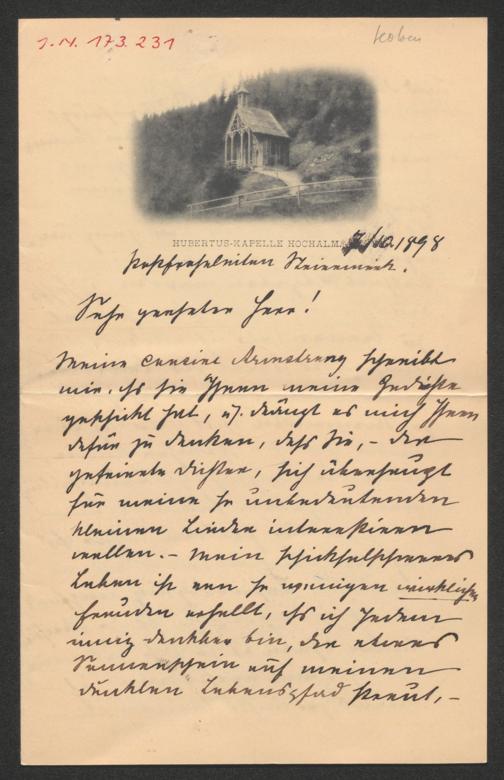 J.N. 173.231
Koben
HUBERTUS-KAPELLE HOCHALM
7/10.1898
Steiermark.
Sehr geehrter Herr!
Meine Cousine Armstrong schreibt
mir, dß sie Ihnen meine Gedichte
geschickt hat, u. drängt es mich Ihnen
dafür zu danken, dass Sie, – der
gefeierte Dichter, sich überhaupt
für meine so unbedeutenden
kleinen Lieder interessieren
wollen. – Mein schicksalschweres
Leben ist von so wenigen wirklichen
Freuden erhellt, dß ich Jedem
innig dankbar bin, der etwas
Sonnenschein auf meinen
dunklen Lebenspfad streut, –